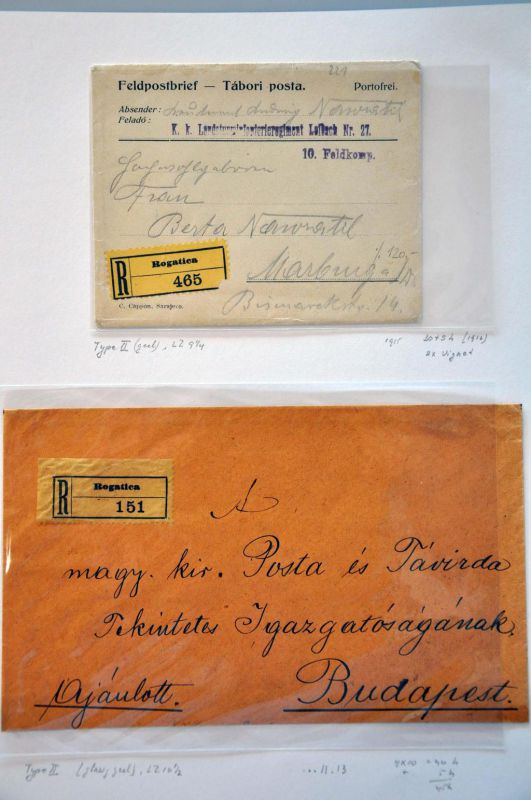 221
Feldpostbrief — Tábori posta. Portofrei.
Absender:
Feladó:
K. k. Landsturminfanterieregiment Laibach Nr. 27.
10. Feldkomp.
Frau
Berta Nawratil
Marburg a/D.
Bismarckstr. 14.
R Rogatica
465
C. Čappon, Sarajevo.
Type II (geel), LZ 9¼ 1915 20+5h (1912)
2x vignet
R Rogatica
151
A
magy. kir. Posta és Távirda
Tekintetes Igazgatóságának
Ajánlott. Budapest.
Type II LZ 10½ 11.13 4x10 = 40 h
5 h
45h